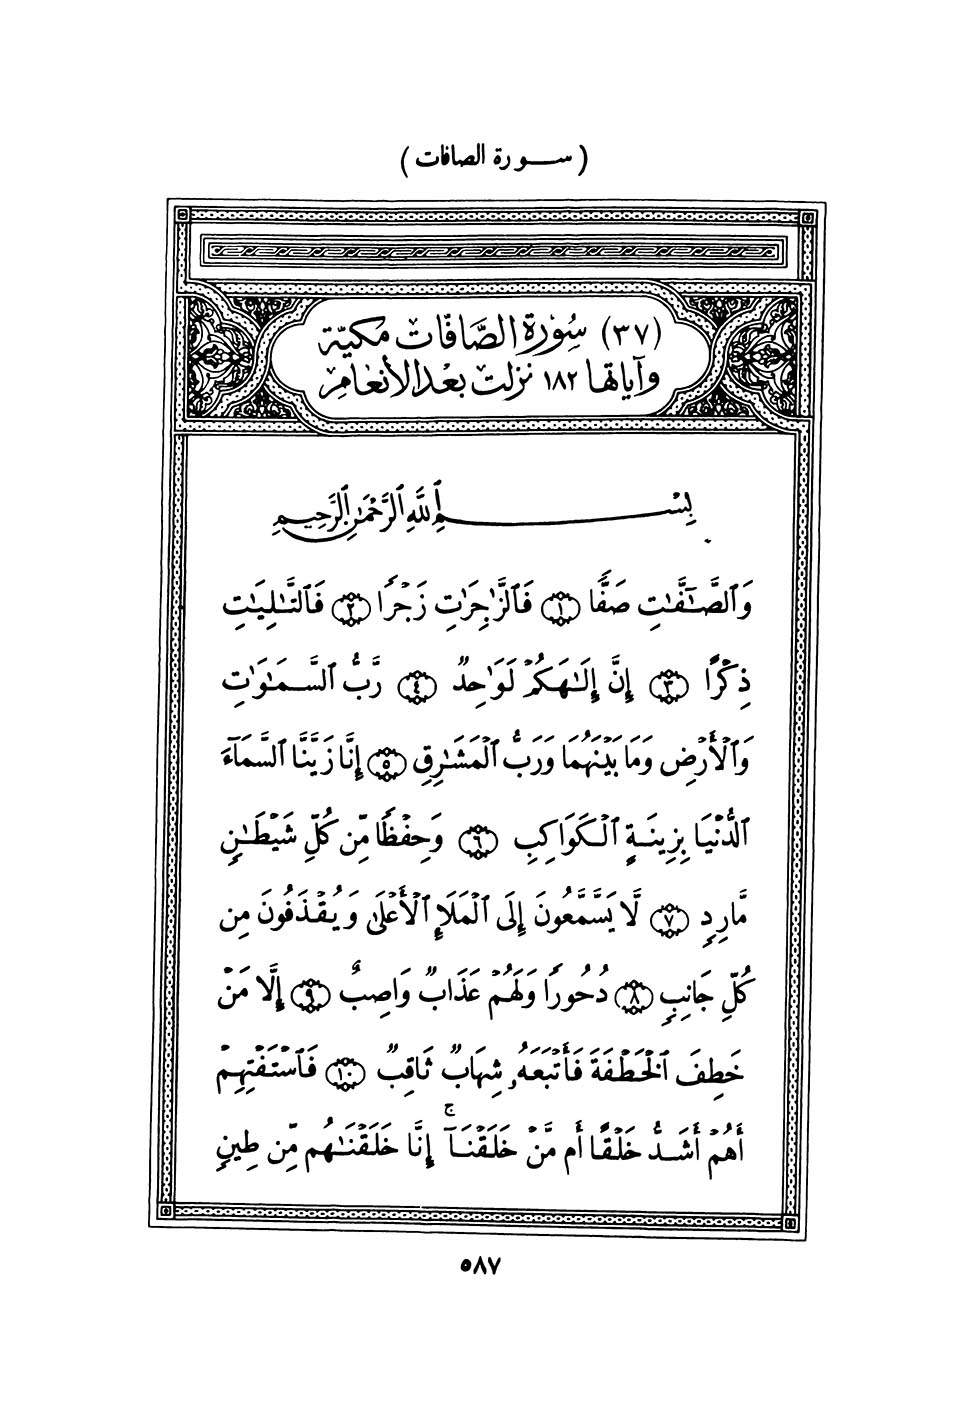 ( سورة الصافات )
(٣٧) سُورَة الصَّافَّات مكيّة
وآياتها ١٨٢ نزلت بعد الأنعام
بِسْمِ ٱللَّهِ ٱلرَّحْمَٰنِ ٱلرَّحِيمِ
وَٱلصَّٰٓفَّٰتِ صَفًّا ۝١ فَٱلزَّٰجِرَٰتِ زَجْرًا ۝٢ فَٱلتَّٰلِيَٰتِ
ذِكْرًا ۝٣ إِنَّ إِلَٰهَكُمْ لَوَٰحِدٌ ۝٤ رَّبُّ ٱلسَّمَٰوَٰتِ
وَٱلْأَرْضِ وَمَا بَيْنَهُمَا وَرَبُّ ٱلْمَشَٰرِقِ ۝٥ إِنَّا زَيَّنَّا ٱلسَّمَآءَ
ٱلدُّنْيَا بِزِينَةٍ ٱلْكَوَاكِبِ ۝٦ وَحِفْظًا مِّن كُلِّ شَيْطَٰنٍ
مَّارِدٍ ۝٧ لَّا يَسَّمَّعُونَ إِلَى ٱلْمَلَإِ ٱلْأَعْلَىٰ وَيُقْذَفُونَ مِن
كُلِّ جَانِبٍ ۝٨ دُحُورًا وَلَهُمْ عَذَابٌ وَاصِبٌ ۝٩ إِلَّا مَنْ
خَطِفَ ٱلْخَطْفَةَ فَأَتْبَعَهُۥ شِهَابٌ ثَاقِبٌ ۝١٠ فَٱسْتَفْتِهِمْ
أَهُمْ أَشَدُّ خَلْقًا أَم مَّنْ خَلَقْنَآ ۚ إِنَّا خَلَقْنَٰهُم مِّن طِينٍ
٥٨٧